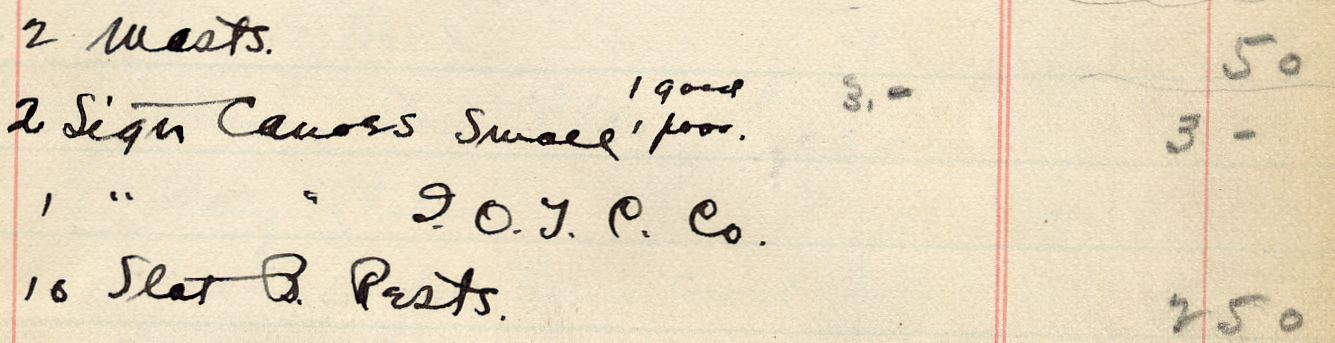 2 Masts. 50
2 Sign Canoes Small 1 good 1 poor. 3.- 3 -
1 " " I. O. T. C. Co.
10 Slat B. Rests. 2 50